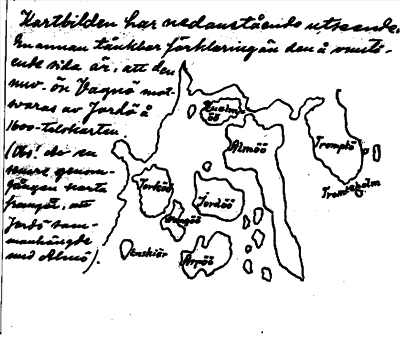 Kartbilden har nedanstående utseende.
En annan tänkbar förklaring än den å motst-
ående sida är, att den
nuv. ön Vagnö mot-
svaras av Jordö å
1600-talskartan.
(Obs! de en
senare genom-
gången karta
framgår, att
Jordö sam-
manhängde
med Almö).
Kualmsöö
Almöö
Tromptö
Tromteholm
Torköö
Wangöö
Jordöö
Enskiär
Arpöö